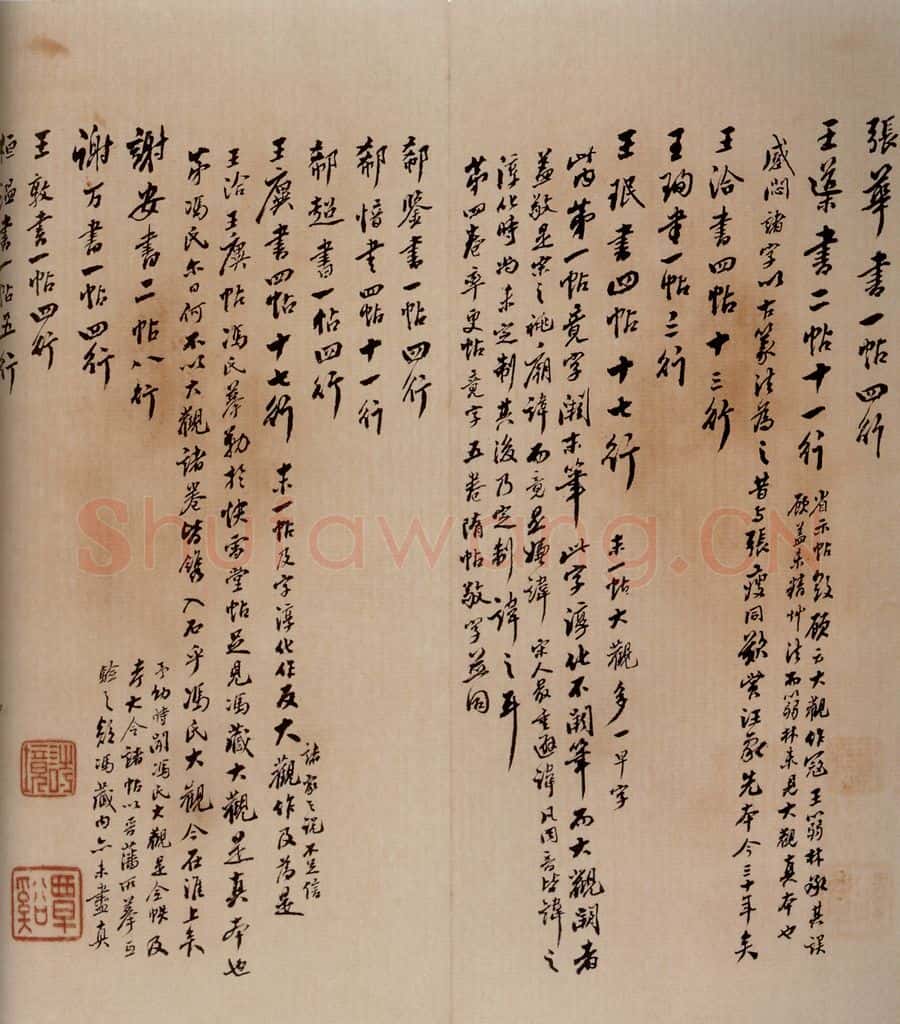 張華書一帖四行
王廙書二帖十一行 省示帖毀頋云大觀作冠王蒻林承其誤
頋蓋未精艸法而蒻林未見大觀真本也
感悶諸字以古篆法為之昔与張瘦同歎賞汪象先本今三十年矣
王洽書四帖十三行
王珣書一帖三行
王珉書四帖十七行 末一帖大觀多一早字
此內第一帖竟字闕末筆 此字淳化不闕筆而大觀闕者
蓋敬是宋之祧廟諱而竟是嫌諱 宋人最重避諱凡同音皆諱之
淳化時尚未定制其後乃定制諱之耳
第四卷率更帖竟字五卷隋帖敬字並同
郗鑒書一帖四行
郗愔書四帖十一行
郗超書一帖四行
王廙書四帖十七行 末一帖及字淳化作反大觀作及為是
諸家之說不足信
王洽王廙帖馮氏摹勒於快雪堂帖足見馮藏大觀是真本也
第馮氏尔日何不以大觀諸卷皆鐫入石乎馮氏大觀今在淮上矣
予幼時聞馮氏大觀是全帙及
孝大令諸帖以晉藩所摹互
驗之疑馮藏內亦未盡真
謝安書二帖八行
謝万書一帖四行
王敦書一帖四行
桓溫書一帖五行
詩境
覃谿
Shufawang.CN